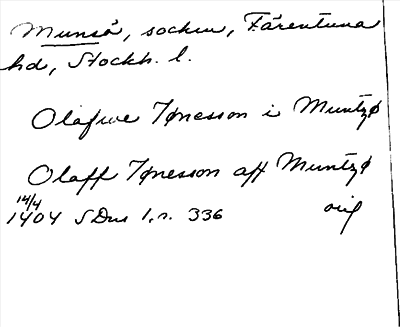 Munsö, socken, Färentuna
hd, Stockh. l.
Olafwe Jønesson i Muntzø
Olaff Jønesson aff Muntzø
14/4
1404 SDns 1, n. 336 orig